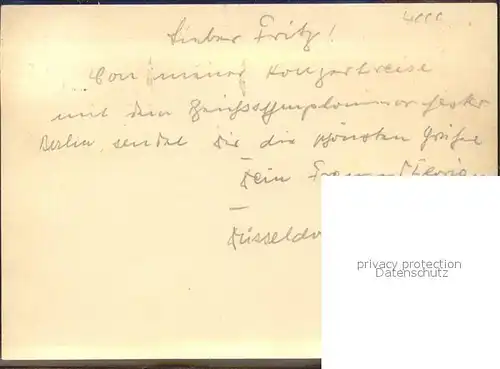 4000
Lieber Fritz!
Von meiner Konzertreise
mit dem Reichssymphonieorchester
Berlin sendet Dir die schönsten Grüße
Dein
Düsseldor
privacy protection
Datenschutz